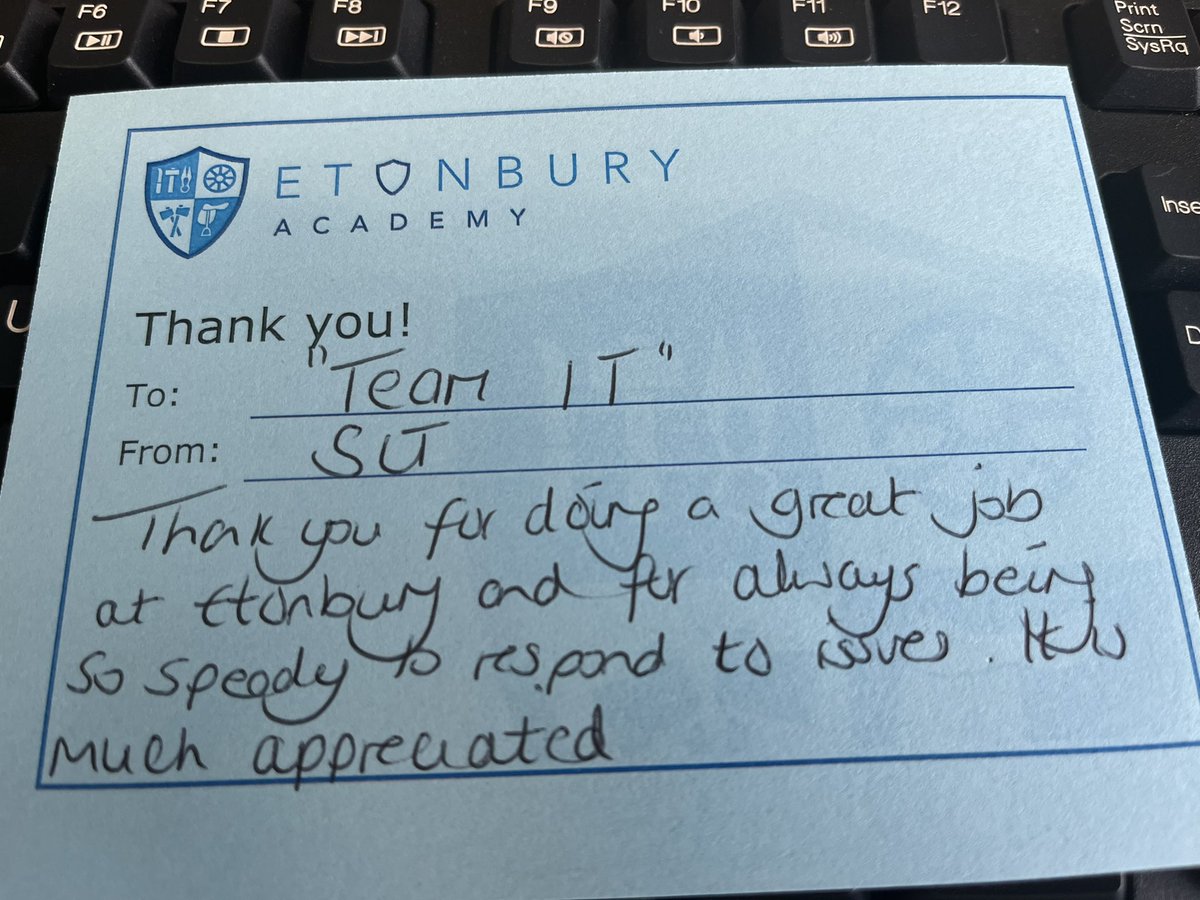 F6 F7 F8 F9 F10 F11 F12 Print
Scrn
SysRq
ETONBURY
ACADEMY
Inse
Thank you!
To: "Team IT"
From: SU
Thank you for doing a great job
at Etonbury and for always being
so speedy to respond to issues. It is
much appreciated
U
D